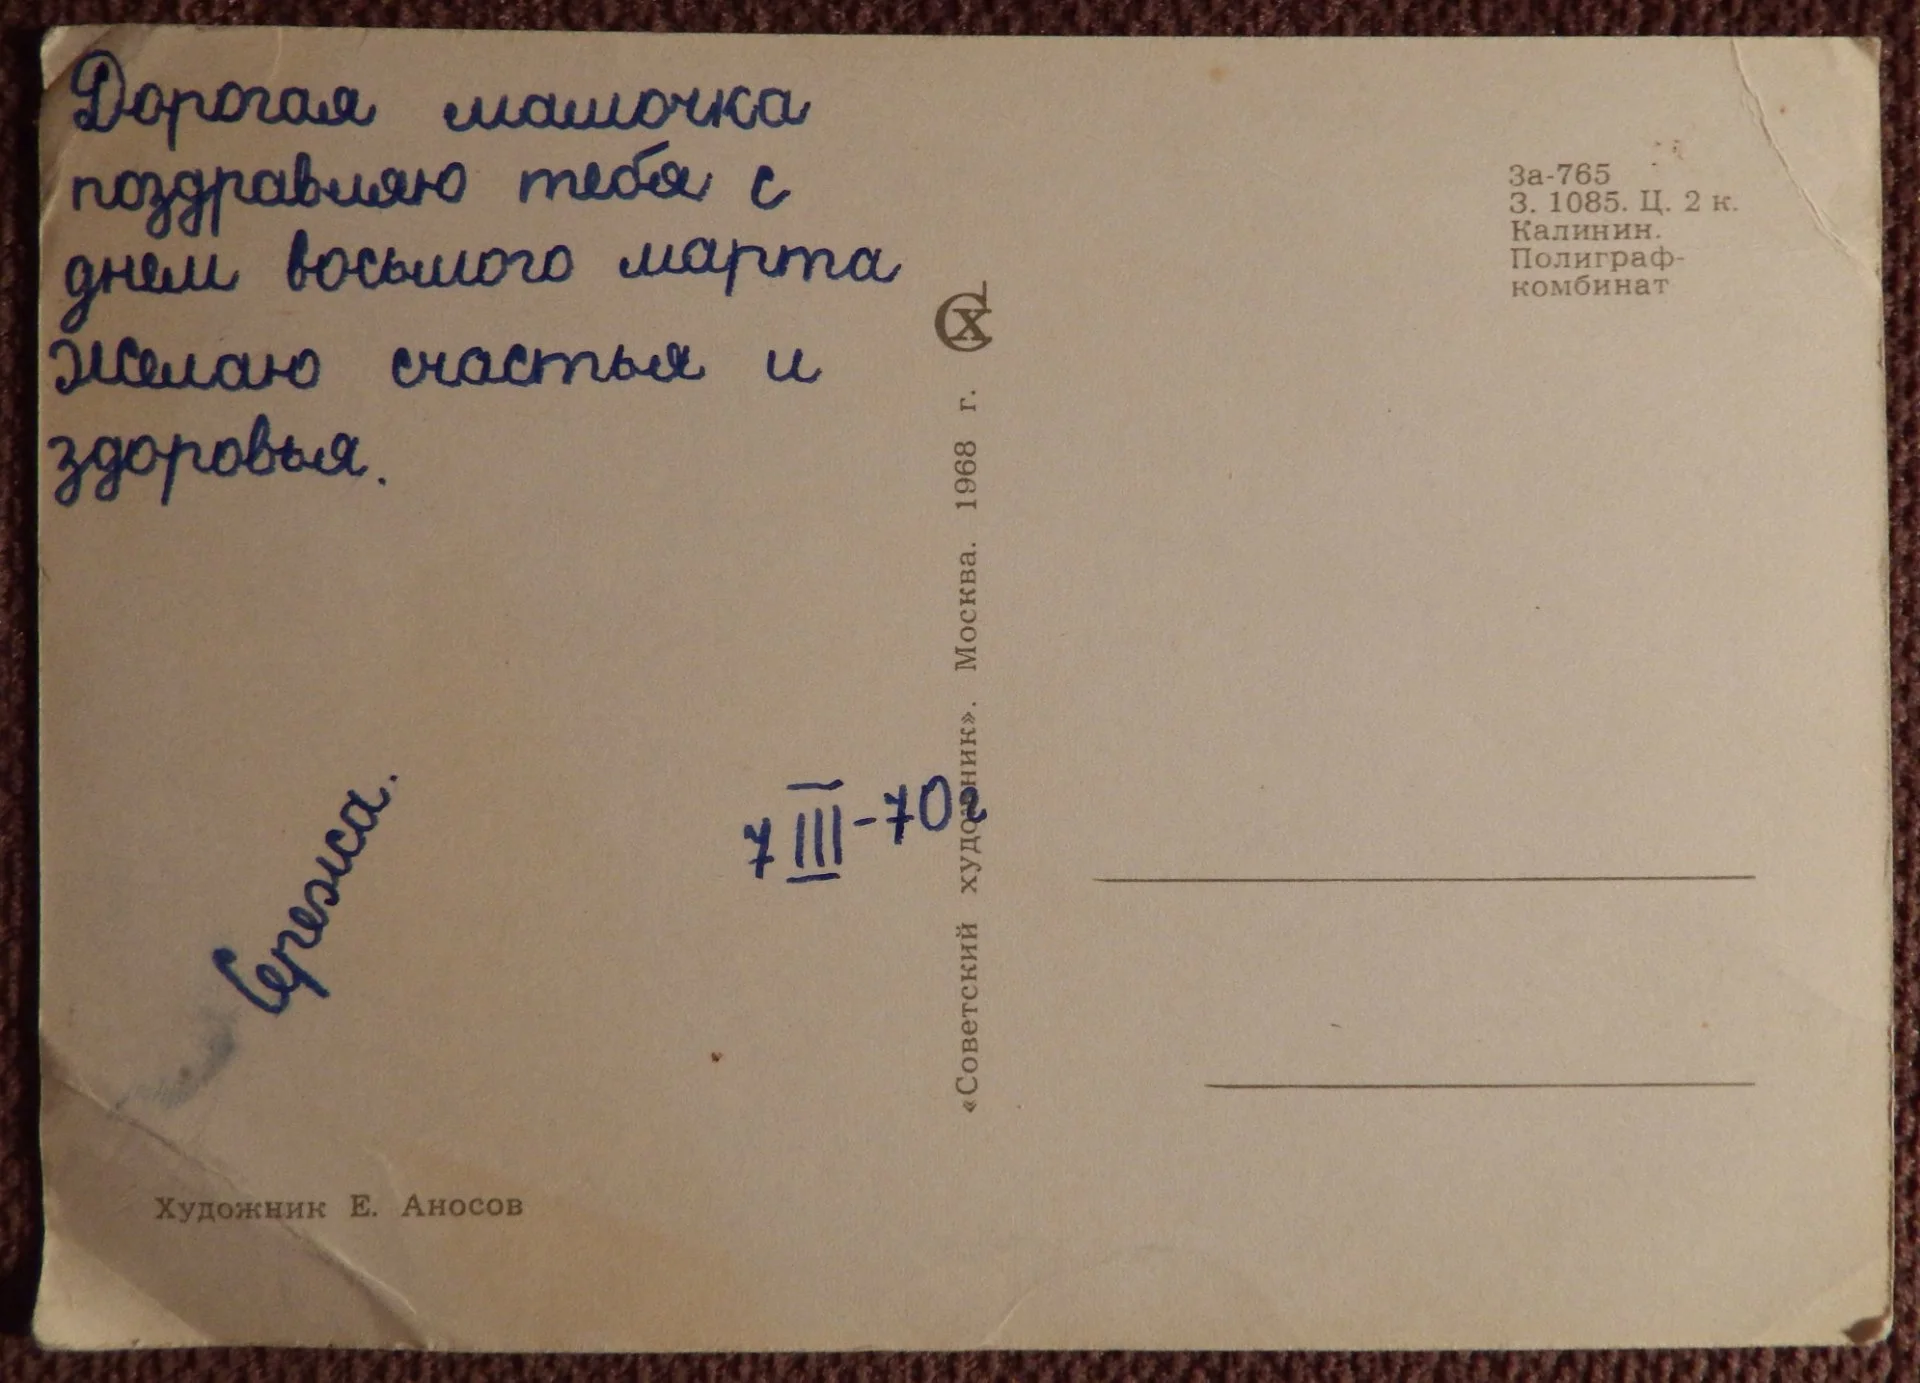 Дорогая машочка
поздравляю тебя с
днем восьмого марта
Желаю счастья и
здоровья.
Сережа.
7 III - 70 г
Художник Е. Аносов
«Советский художник». Москва. 1968 г.
СХ
За-765
З. 1085. Ц. 2 к.
Калинин.
Полиграф-
комбинат